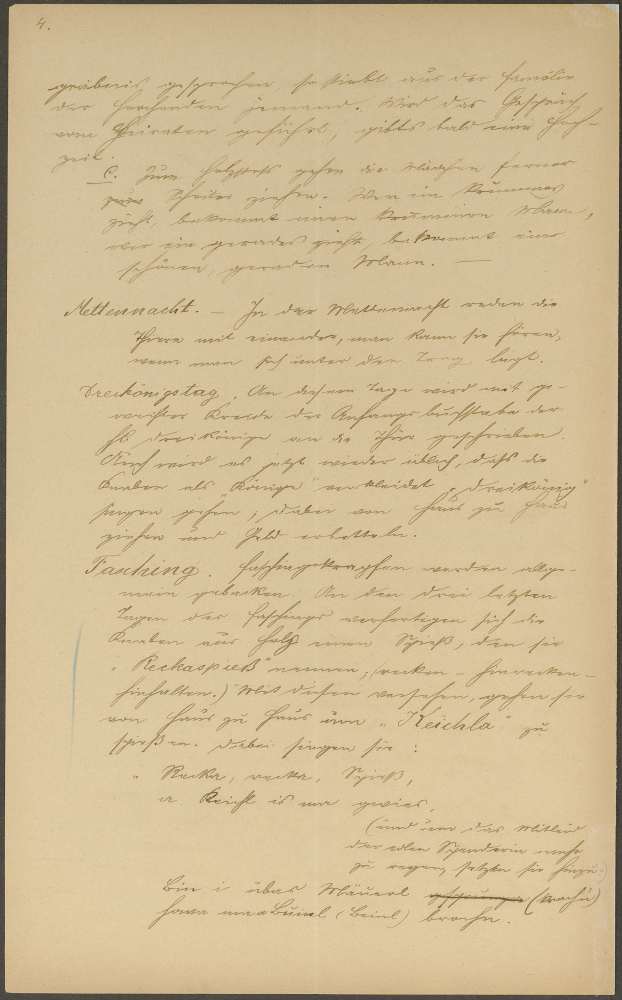 4.
gräbnis gesprochen, so stirbt aus der Familie
der Horchenden jemand. Wird das Gespräch
vom Heiraten geführt, gibts bald eine Hoch-
zeit.
c. Zum Holzstoß gehen die Mädchen ferner
Scheiter ziehen. Wer ein krummes
zieht, bekommt einen krummen Mann,
wer ein gerades zieht, bekommt einen
schönen, geraden Mann. —
Mettennacht. — In der Mettennacht reden die
Tiere mit einander, man kann sie hören,
wenn man sich unter den legt.
Dreikönigstag. An diesem Tage wird mit ge-
weihter Kreide der Anfangsbuchstabe der
hl. Dreikönige an die Thüre geschrieben.
Auch wird es jetzt wieder üblich, daß die
Knaben als „Könige" verkleidet „Dreikönig"
singen gehen, dabei von Haus zu Haus
ziehen und Geld erbetteln.
Fasching. Faschingskrapfen werden allge-
mein gebacken. An den drei letzten
Tagen des Faschings verfertigen sich die
Knaben aus Holz einen Spieß, den sie
„Reckaspieß" nennen, (recken – hinrecken –
hinhalten.) Mit diesen versehen, gehen sie
von Haus zu Haus um „Keichla" zu
spießen. Dabei singen sie:
„Recka, recka, Spieß,
a Keichl is ma gwies,
(und um das Mitleid
der edlen Spenderin mehr
zu regen, setzen sie hinzu:)
Bin i übas Mäuerl
hava ma a Buanl (Beinl) brocha.